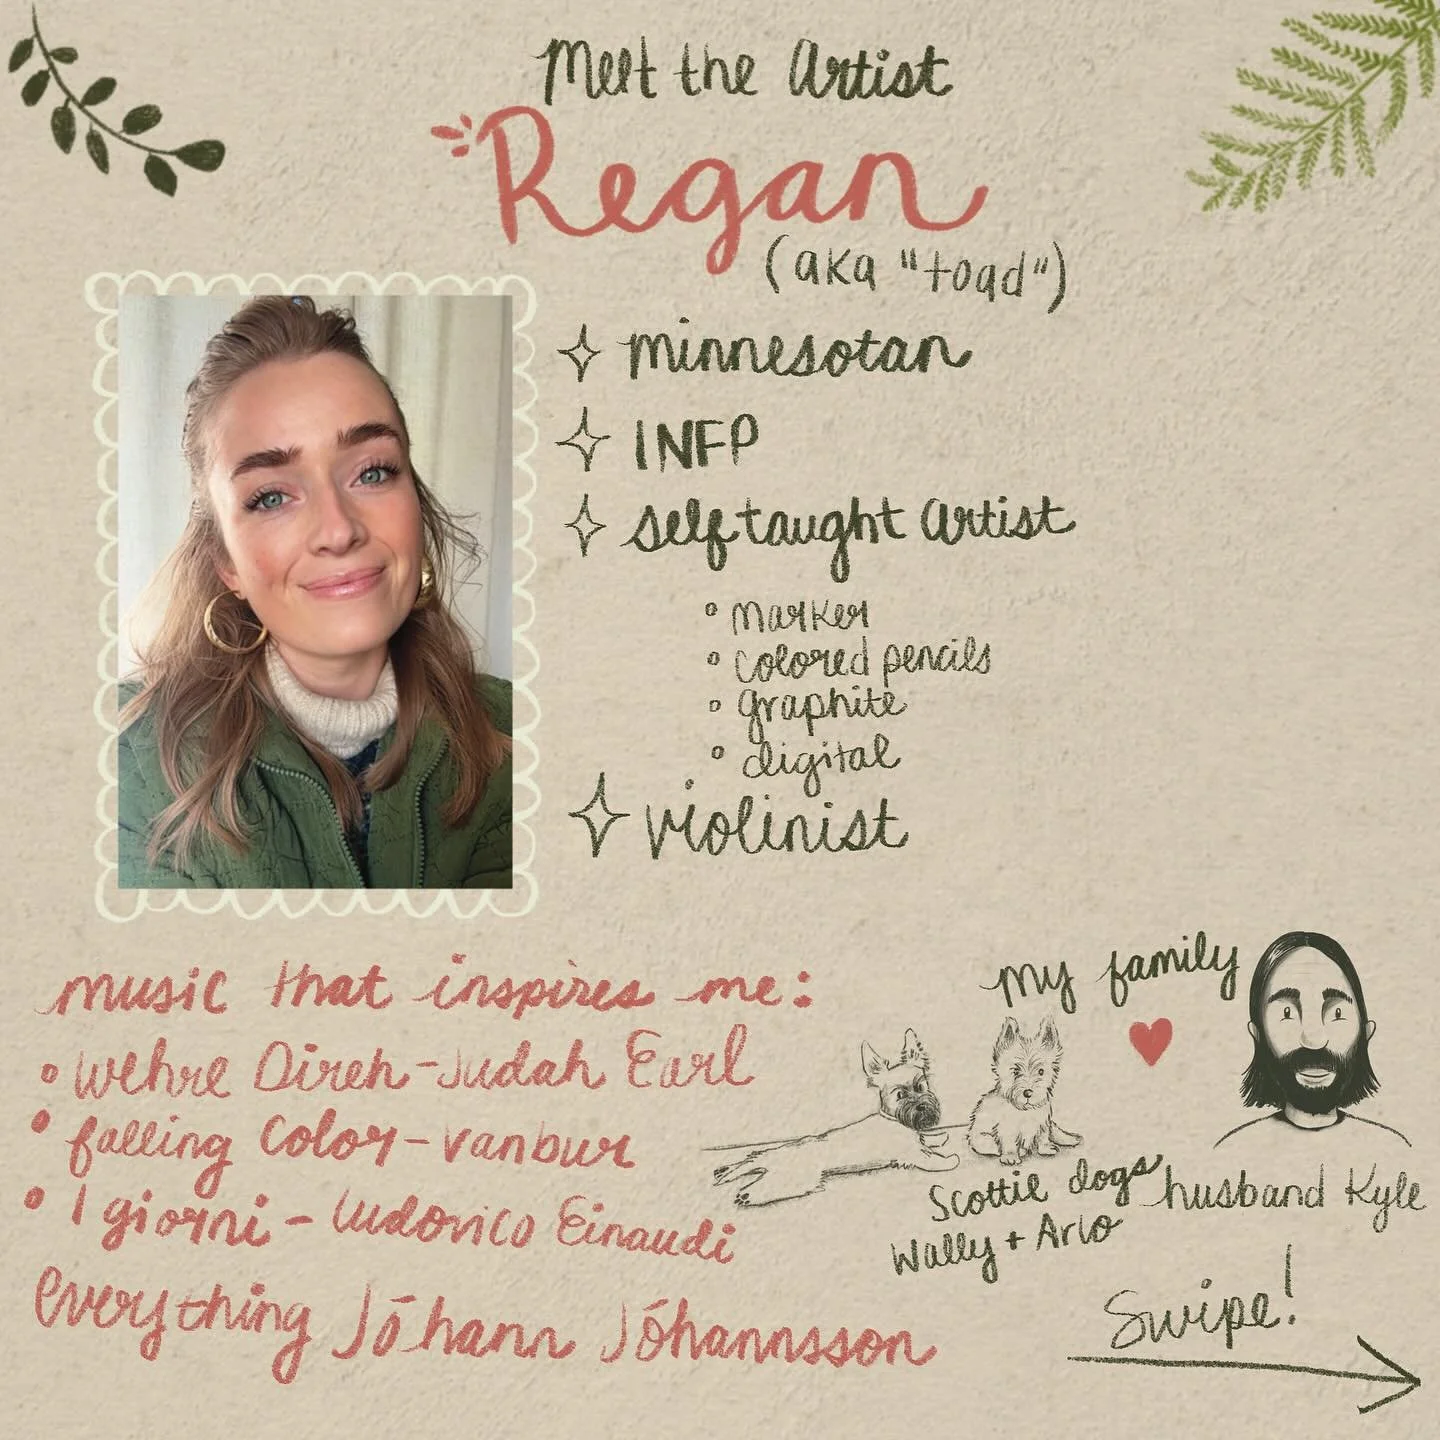 Meet the Artist
Regan
(aka "toad")
minnesotan
INFP
self taught artist
marker
colored pencils
graphite
digital
violinist
music that inspires me:
Wehre Direh - Judah Earl
falling Color - vanbur
I giorni - Ludovico Einaudi
everything Jóhann Jóhannsson
my family
Scottie dogs
Wally + Arlo
husband Kyle
Swipe!